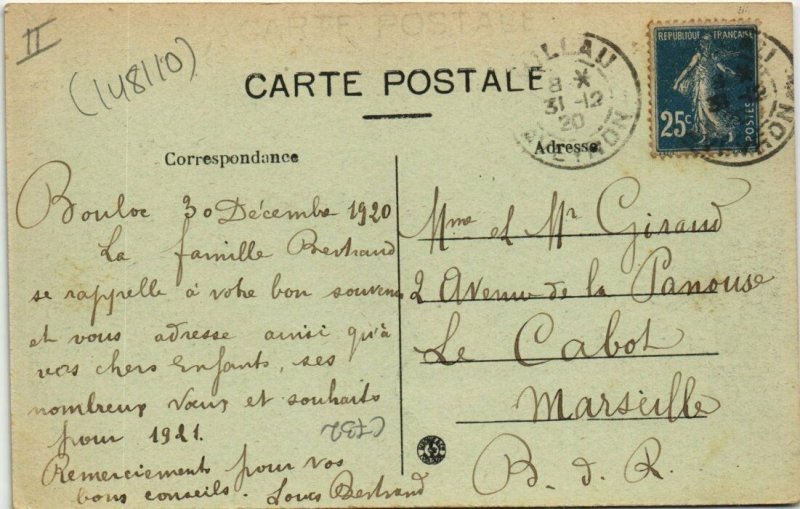 II
(148110)
CARTE POSTALE
CARTE POSTALE
MILLAU
8 *
31-12
20
AVEYRON
REPUBLIQUE FRANÇAISE
25c
POSTES
Correspondance
Adresse
Bouloc 30 Décembre 1920
La famille Bertrand
se rappelle à votre bon souvenir
et vous adresse ainsi qu'à
vos chers enfants, ses
nombreux vœux et souhaits
pour 1921.
Remerciements pour vos
bons conseils. Louis Bertrand
Mme et Mr Giraud
2 Avenue de la Panouse
Le Cabot
Marseille
B. d. R.